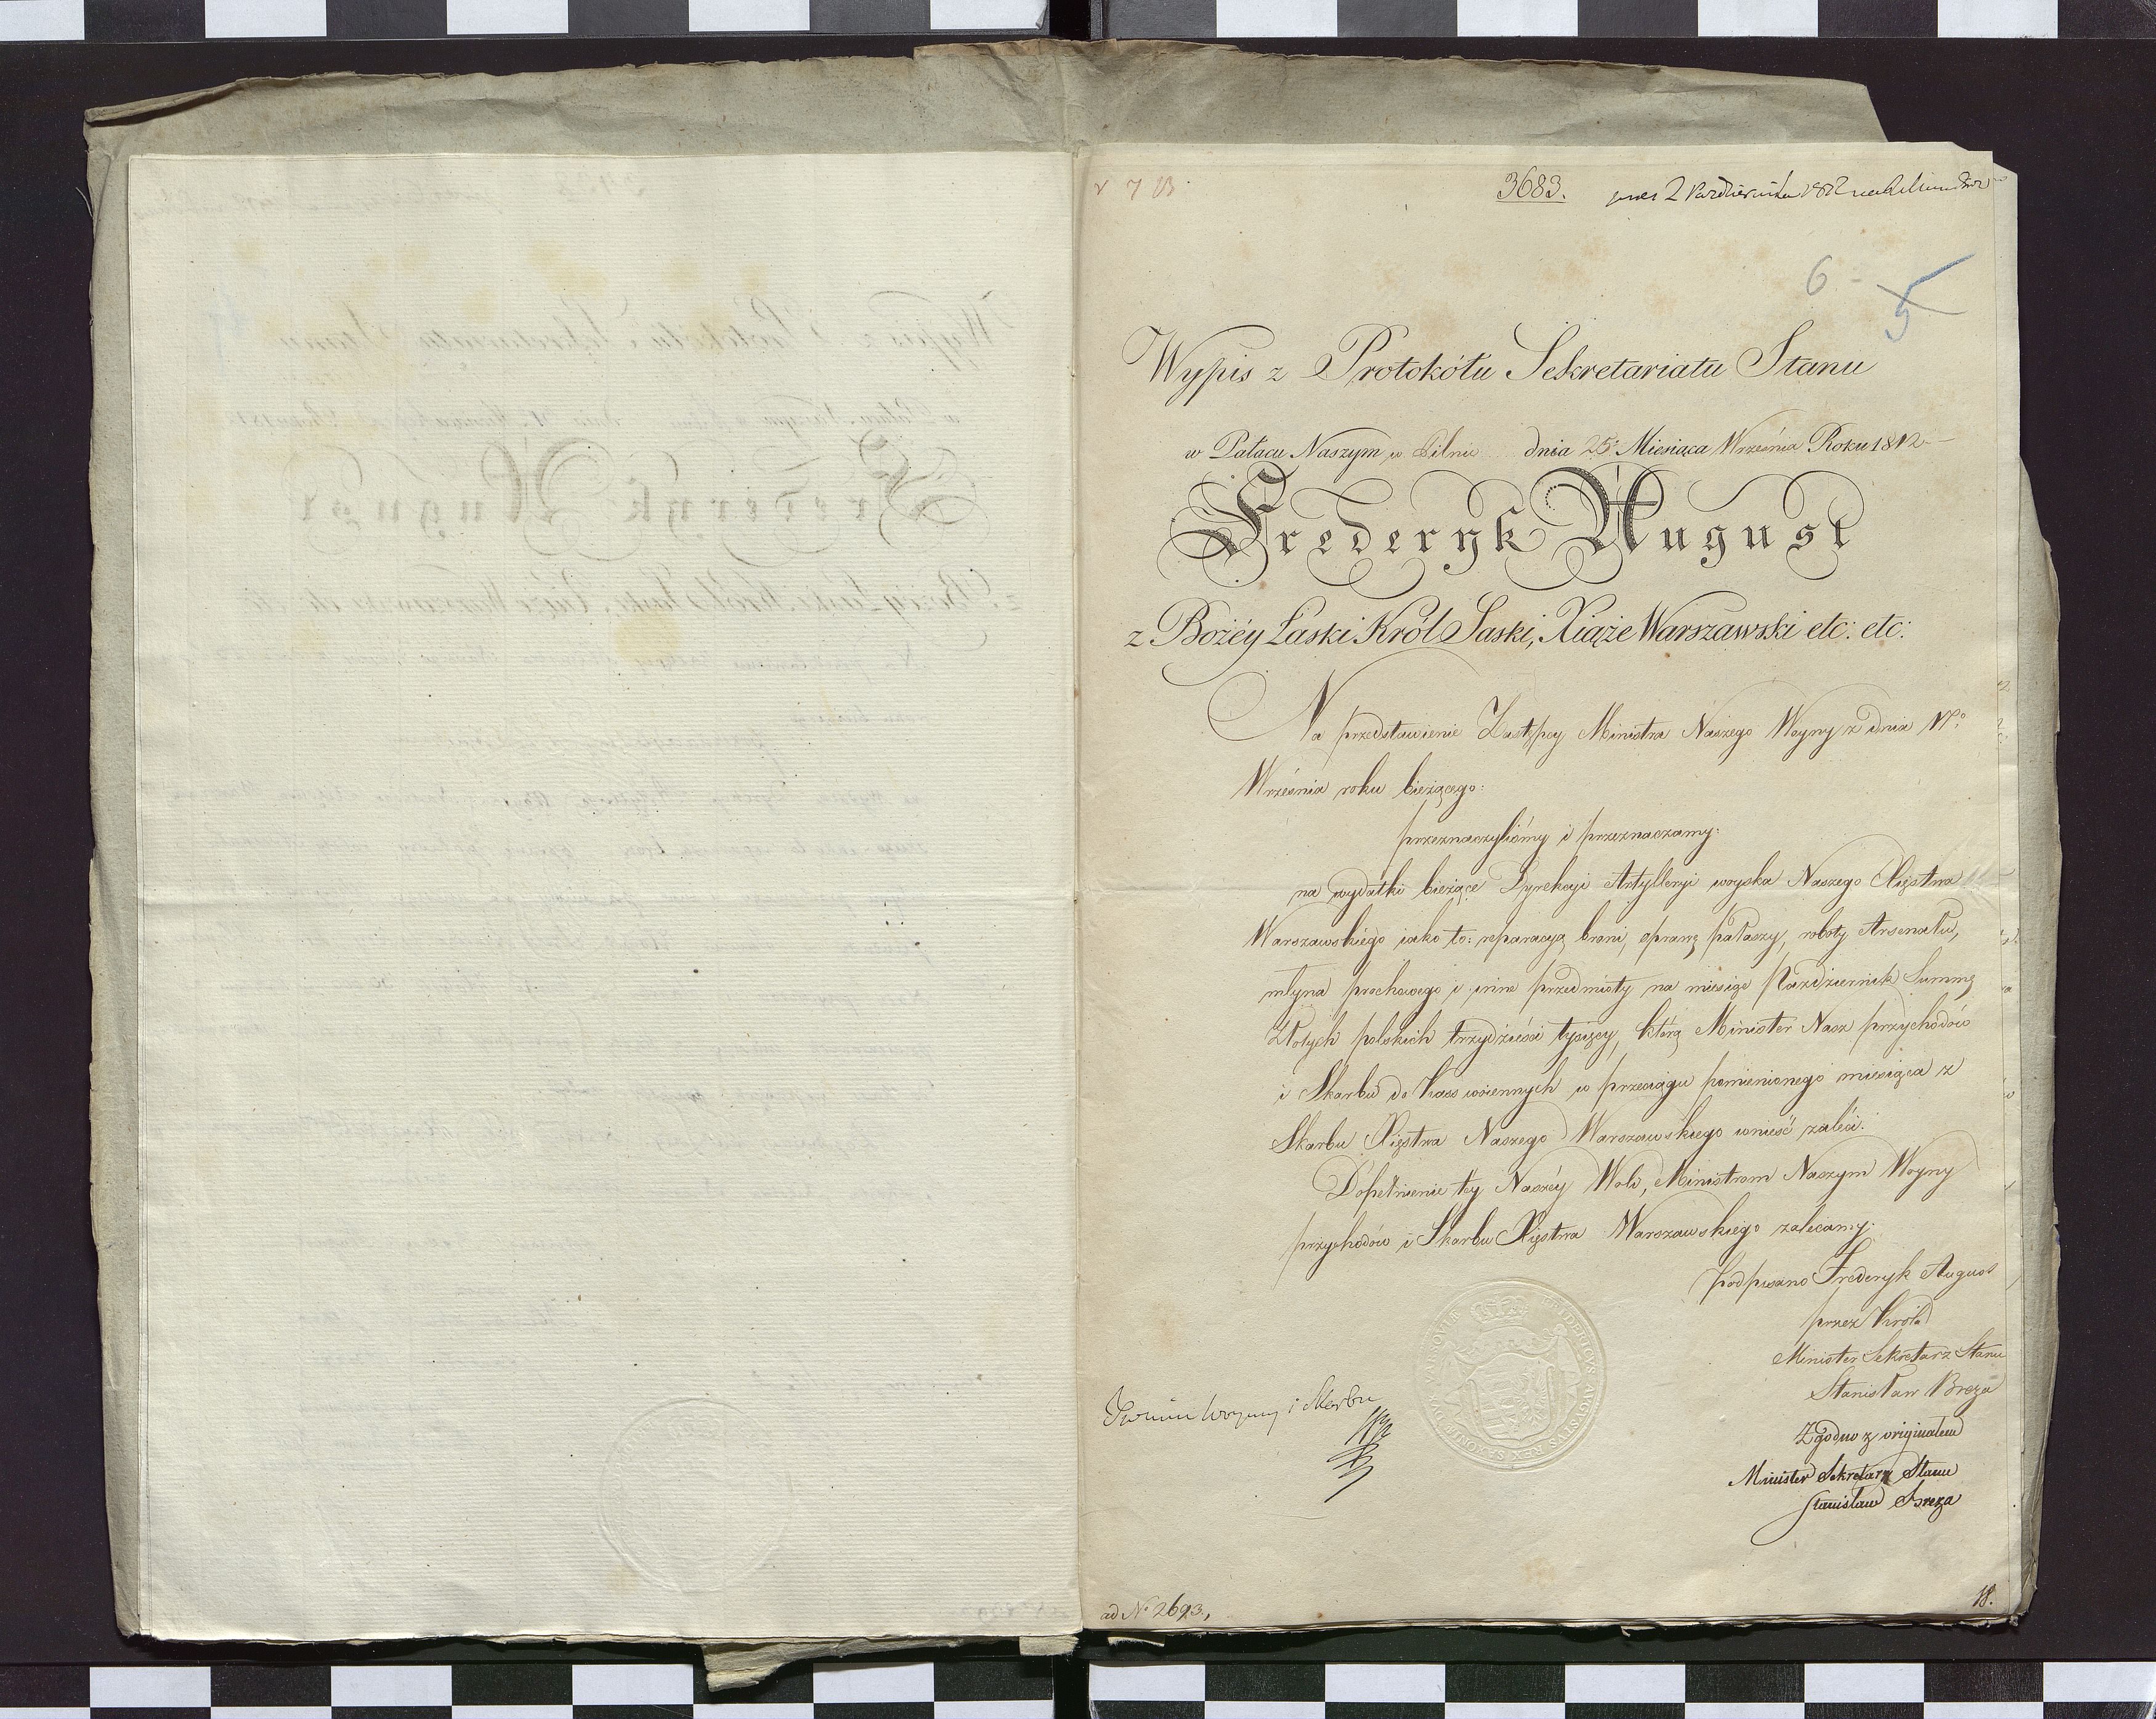 3683.
6 -
5
Wypis z Protokółu Sekretariatu Stanu
w Pałacu Naszym w Pilnic dnia 25º Miesiąca Września Roku 1812 -
Frederyk August
z Bożéy Łaski Król Saski, Xiąże Warszawski etc: etc:
Na przedstawienie Zastępcy Ministra Naszego Woyny z dnia 17º
Września roku bieżącego:
przeznaczyliśmy i przeznaczamy:
na wydatki bieżące Dyrekcyi Artylleryi woyska Naszego Xięstwa
Warszawskiego iako to: reparacyą broni, oprawę pałaszy, roboty Arsenału,
młyna prochowego i inne przedmioty na miesiąc Październik Summę
Złotych polskich trzydzieści tysięcy, którą Minister Nasz przychodów
i Skarbu do Kass woiennych w przeciągu pomienionego miesiąca z
Skarbu Xięstwa Naszego Warszawskiego wnieść zaleci.
Dopełnienie tey Naszéy Woli, Ministrom Naszym Woyny
przychodów i Skarbu Xięstwa Warszawskiego zalecamy.
podpisano Frederyk August
przez Króla
Minister Sekretarz Stanu
Stanisław Breza
Zgodno z originałem
Minister Sekretarz Stanu
Stanisław Breza
Woyny i Skarbu
FRIDERICVS AVGVSTVS REX SAXONIAE
ad Nº 2693.,
18.